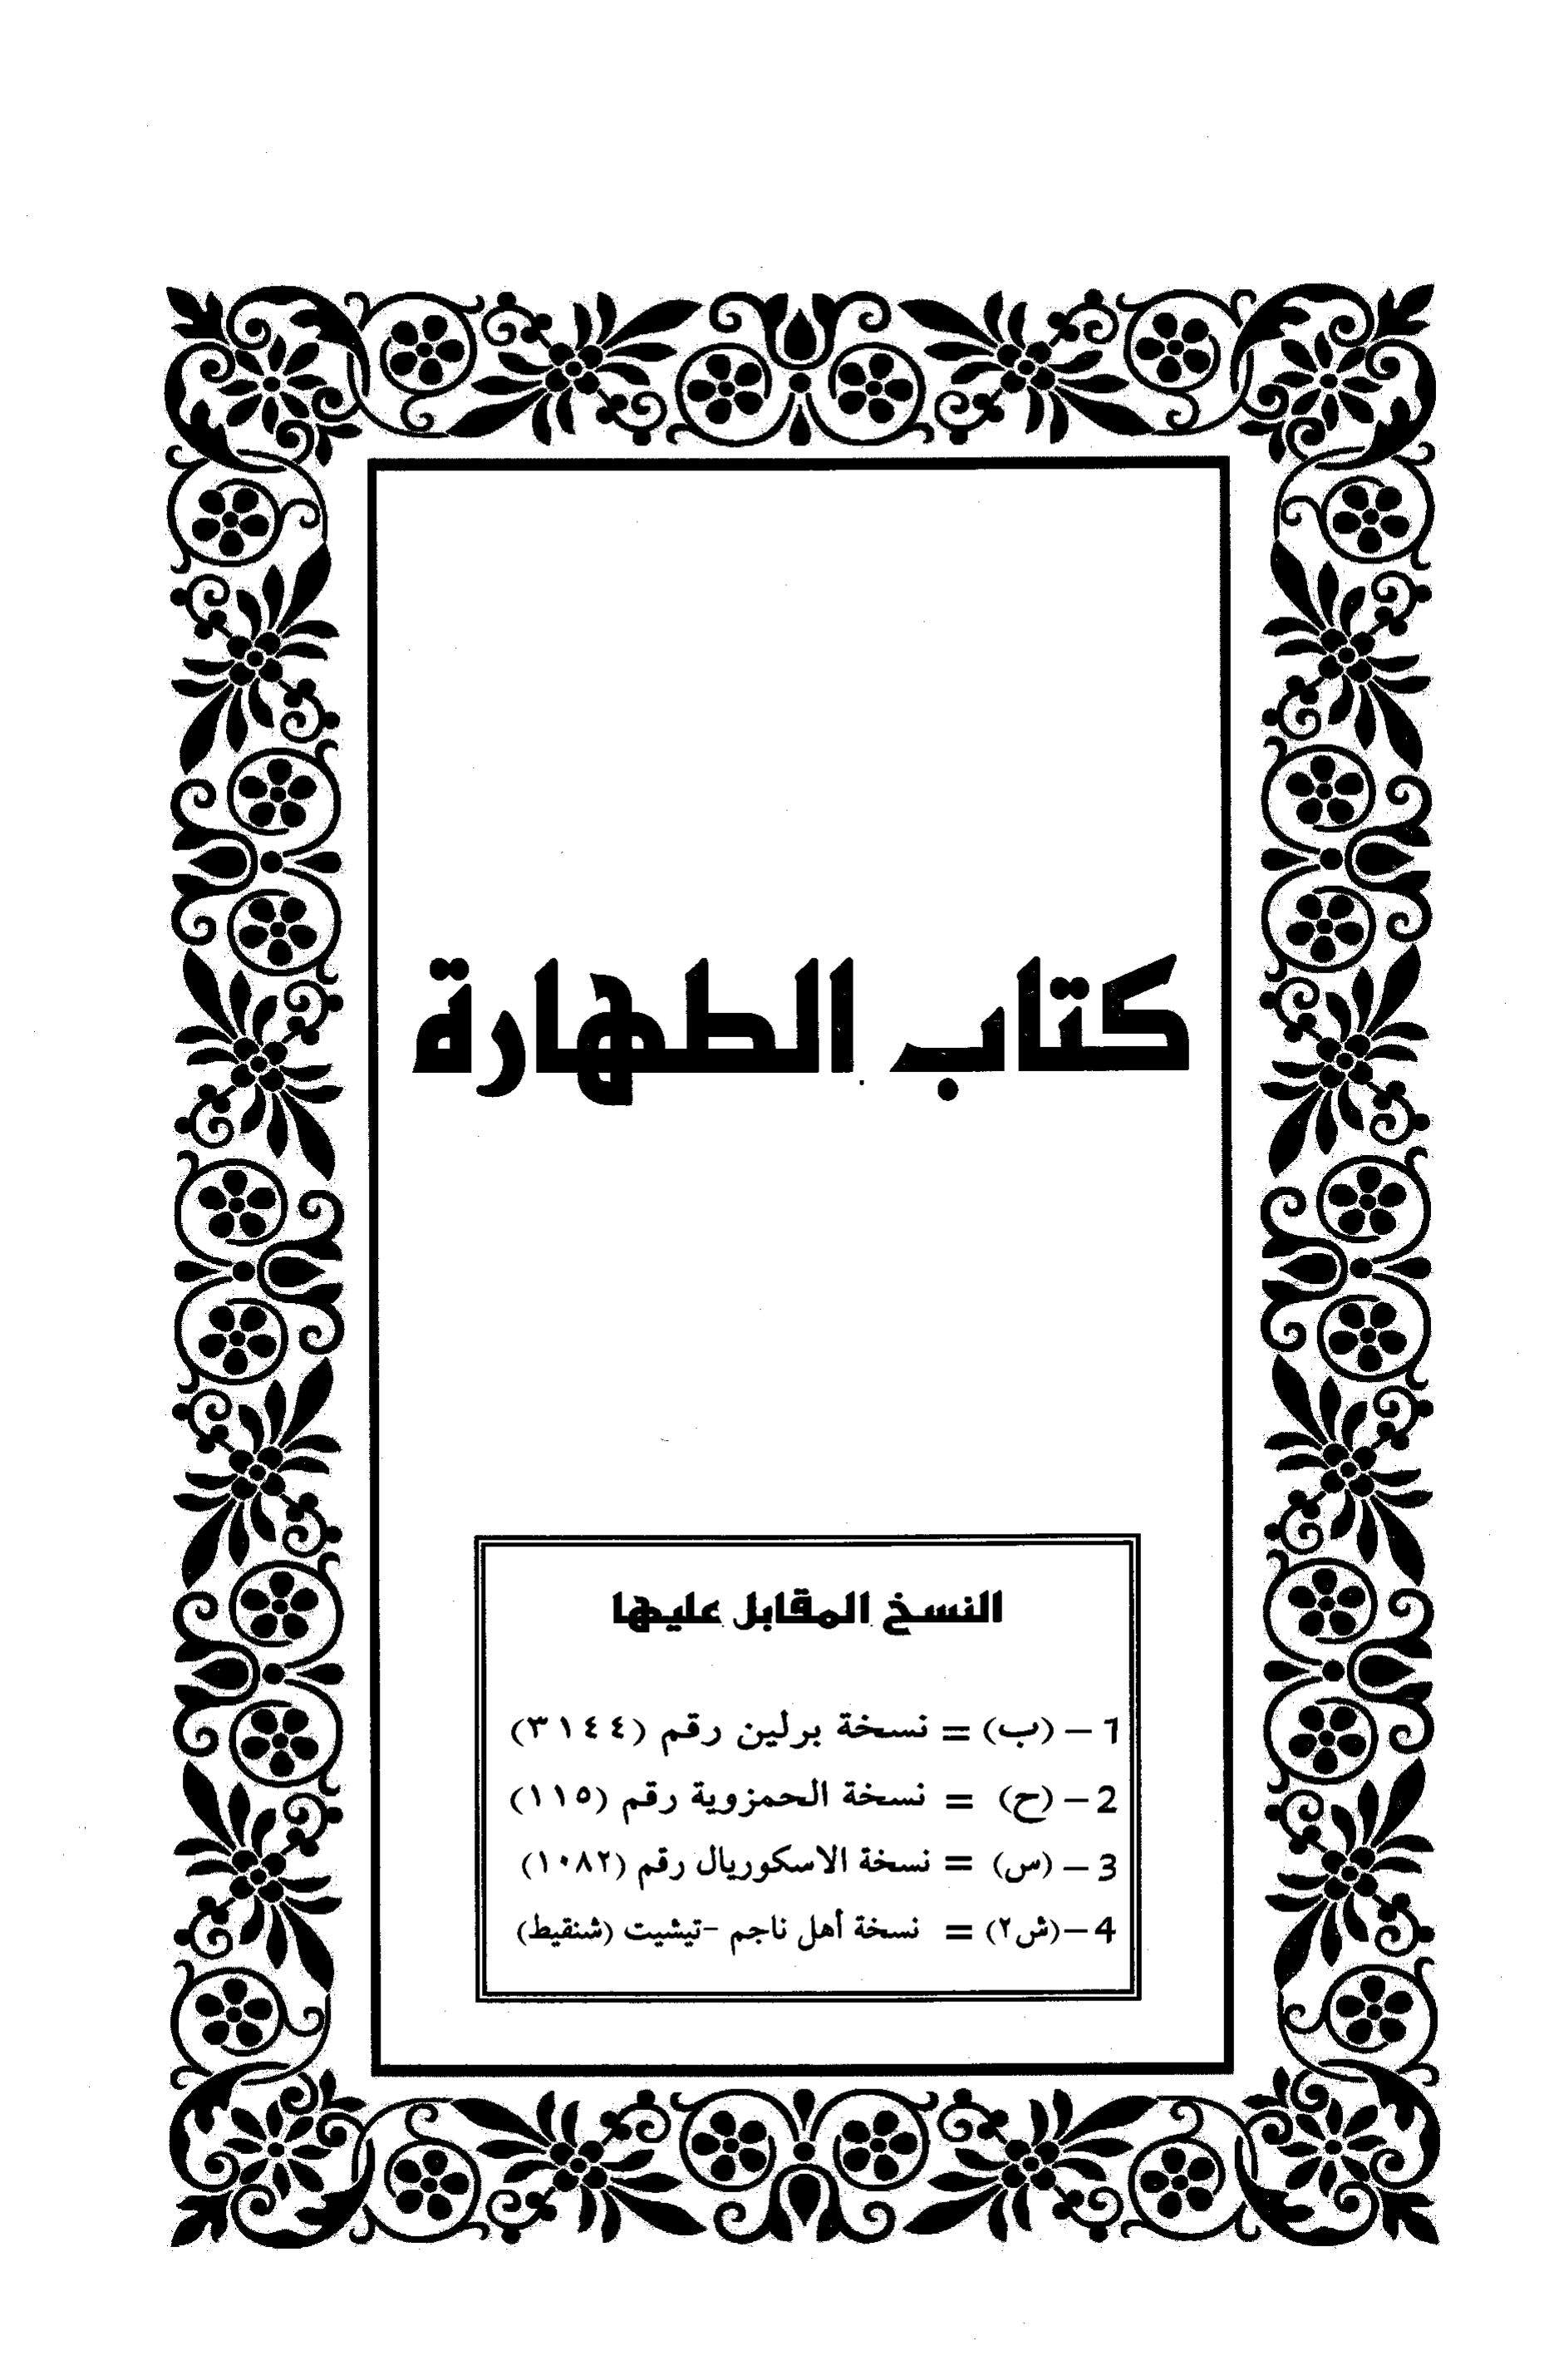 كتاب الطهارة
النسخ المقابل عليها
1 - (ب) = نسخة برلين رقم (٣١٤٤)
2 - (ح) = نسخة الحمزوية رقم (١١٥)
3 - (س) = نسخة الاسكوريال رقم (١٠٨٢)
4 -(ش٢) = نسخة أهل ناجم -تيشيت (شنقيط)